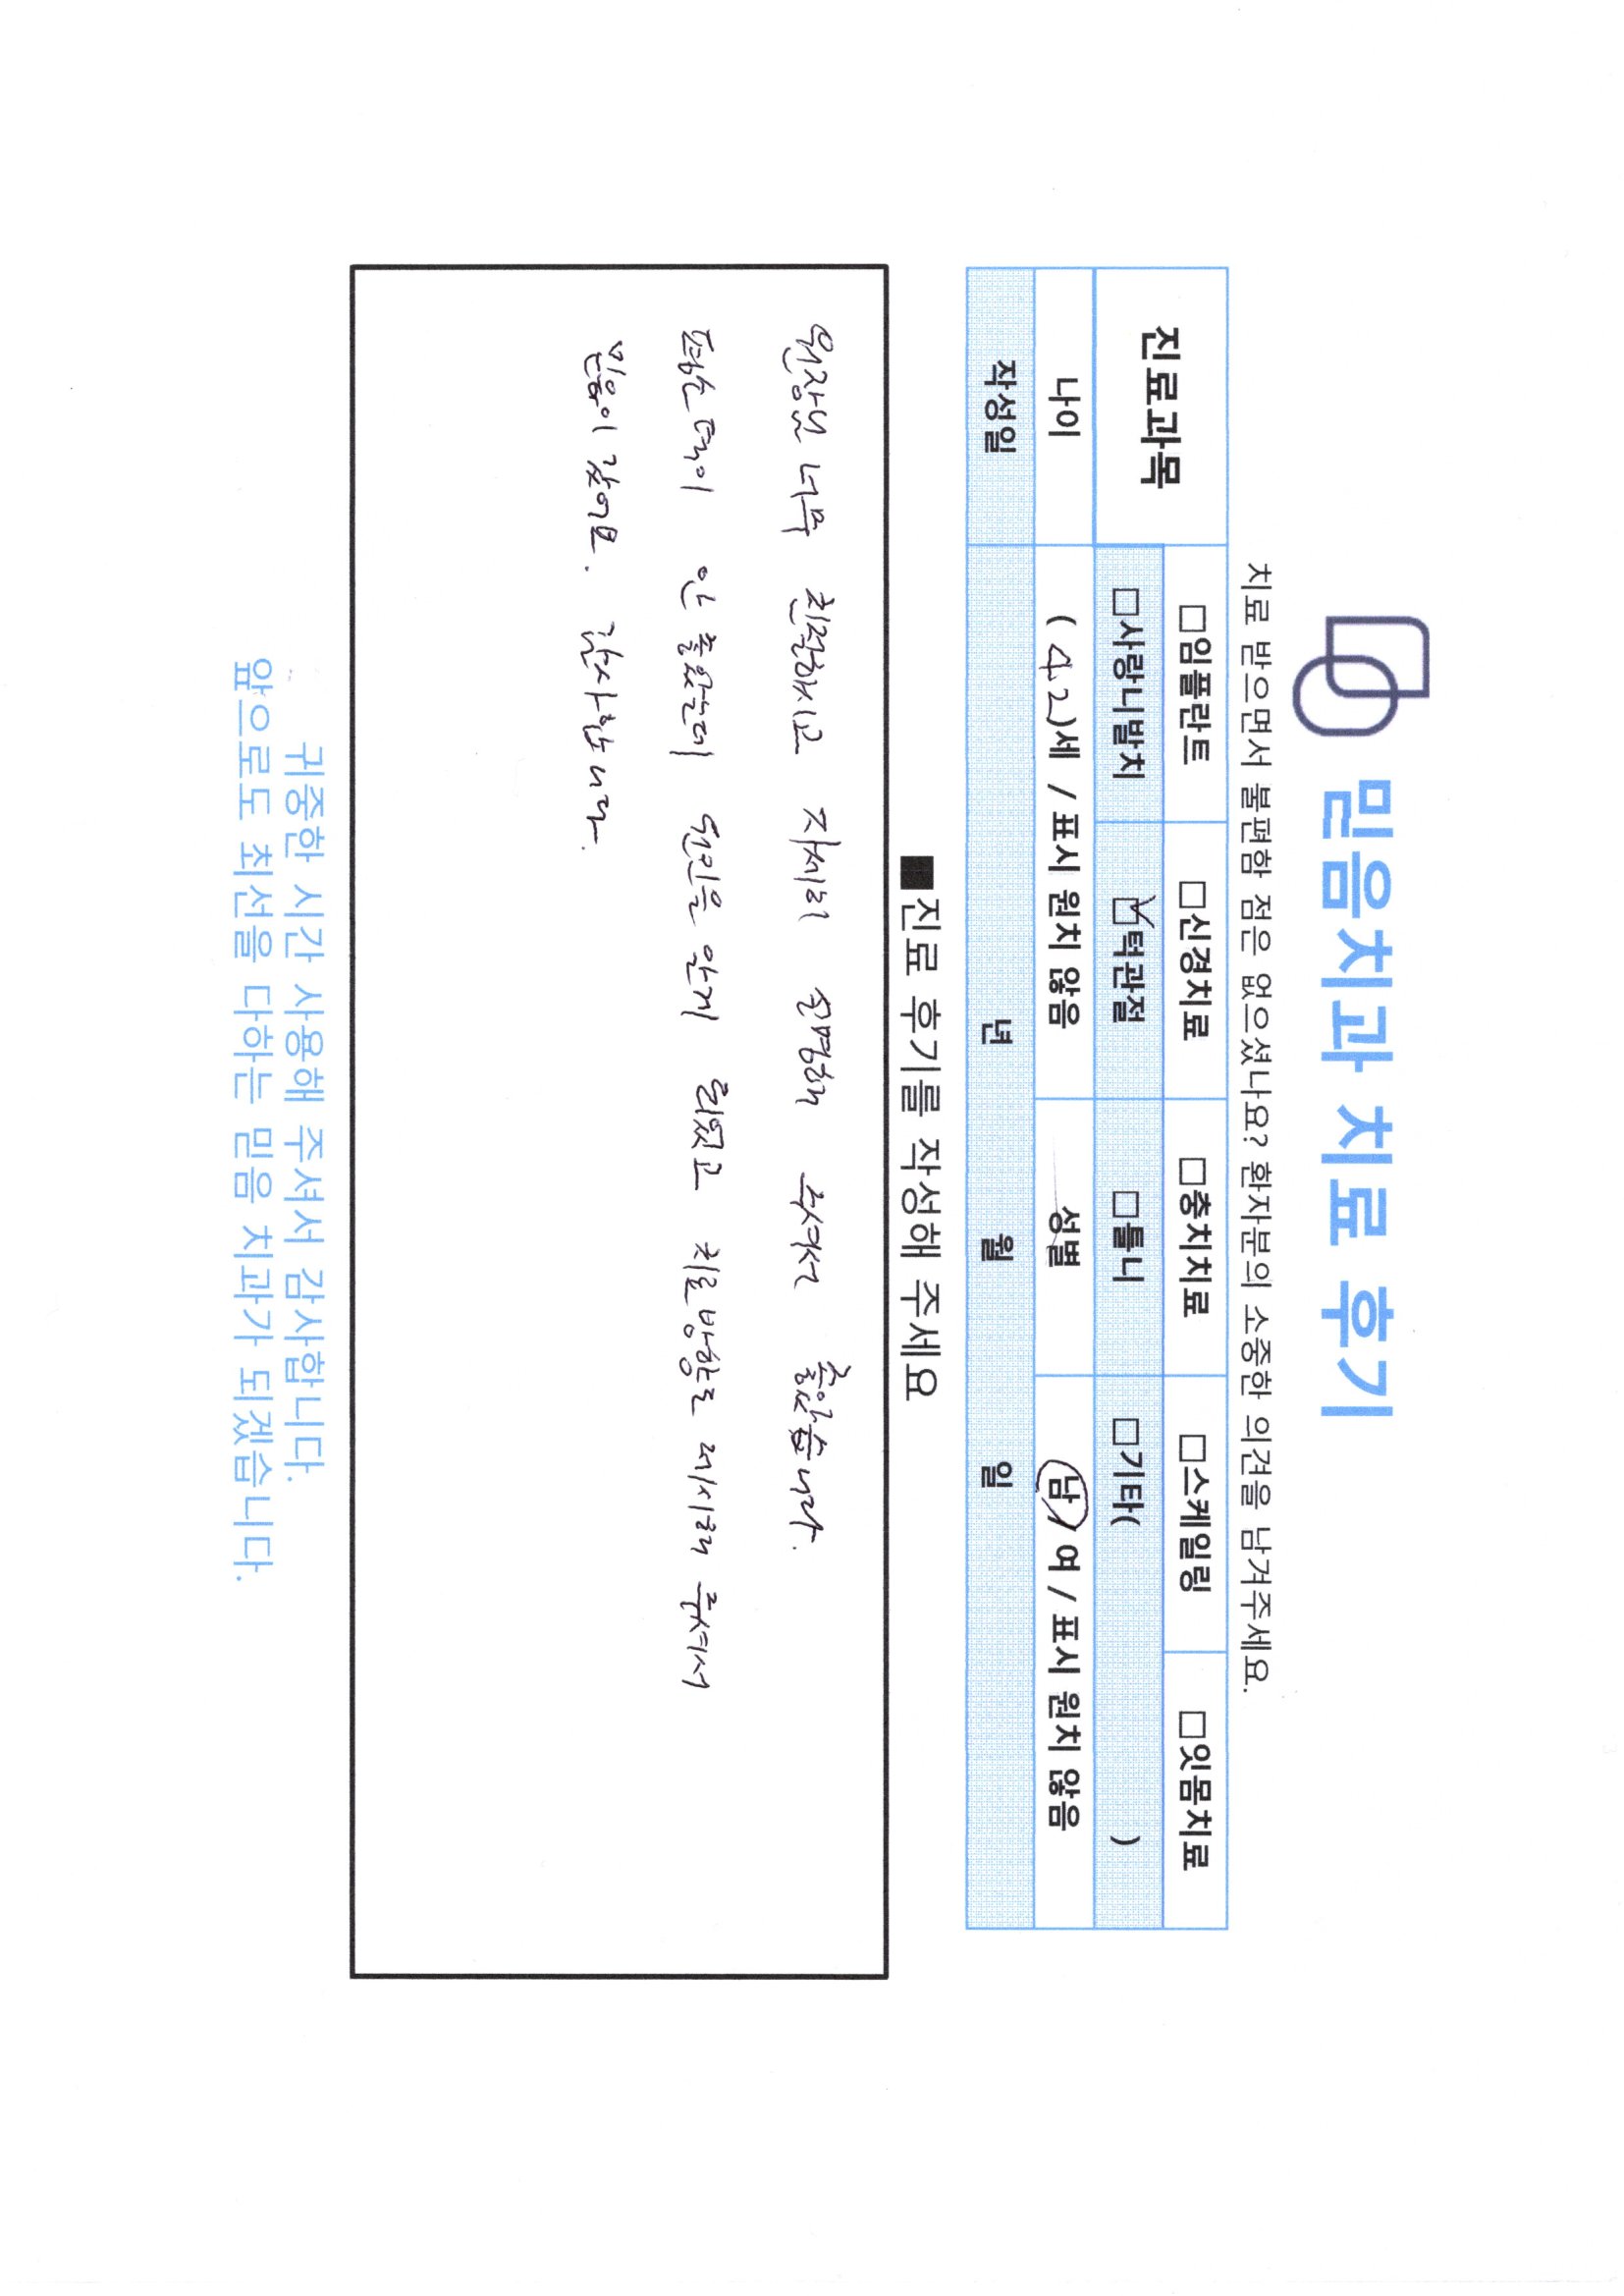 믿음치과 치료 후기
치료 받으면서 불편함 점은 없으셨나요? 환자분의 소중한 의견을 남겨주세요.
진료과목
□임플란트 □신경치료 □충치치료 □스케일링 □잇몸치료
□사랑니발치 ☑턱관절 □틀니 □기타( )
나이 ( 42 )세 / 표시 원치 않음 성별 남 / 여 / 표시 원치 않음
작성일 년 월 일
■진료 후기를 작성해 주세요
원장님 너무 친절하시고 자세히 설명해 주셔서 좋았습니다.
평소 턱이 안 좋았는데 원인을 알게 되었고 치료방향도 제시해 주셔서
믿음이 갔어요. 감사합니다.
귀중한 시간 사용해 주셔서 감사합니다.
앞으로도 최선을 다하는 믿음 치과가 되겠습니다.